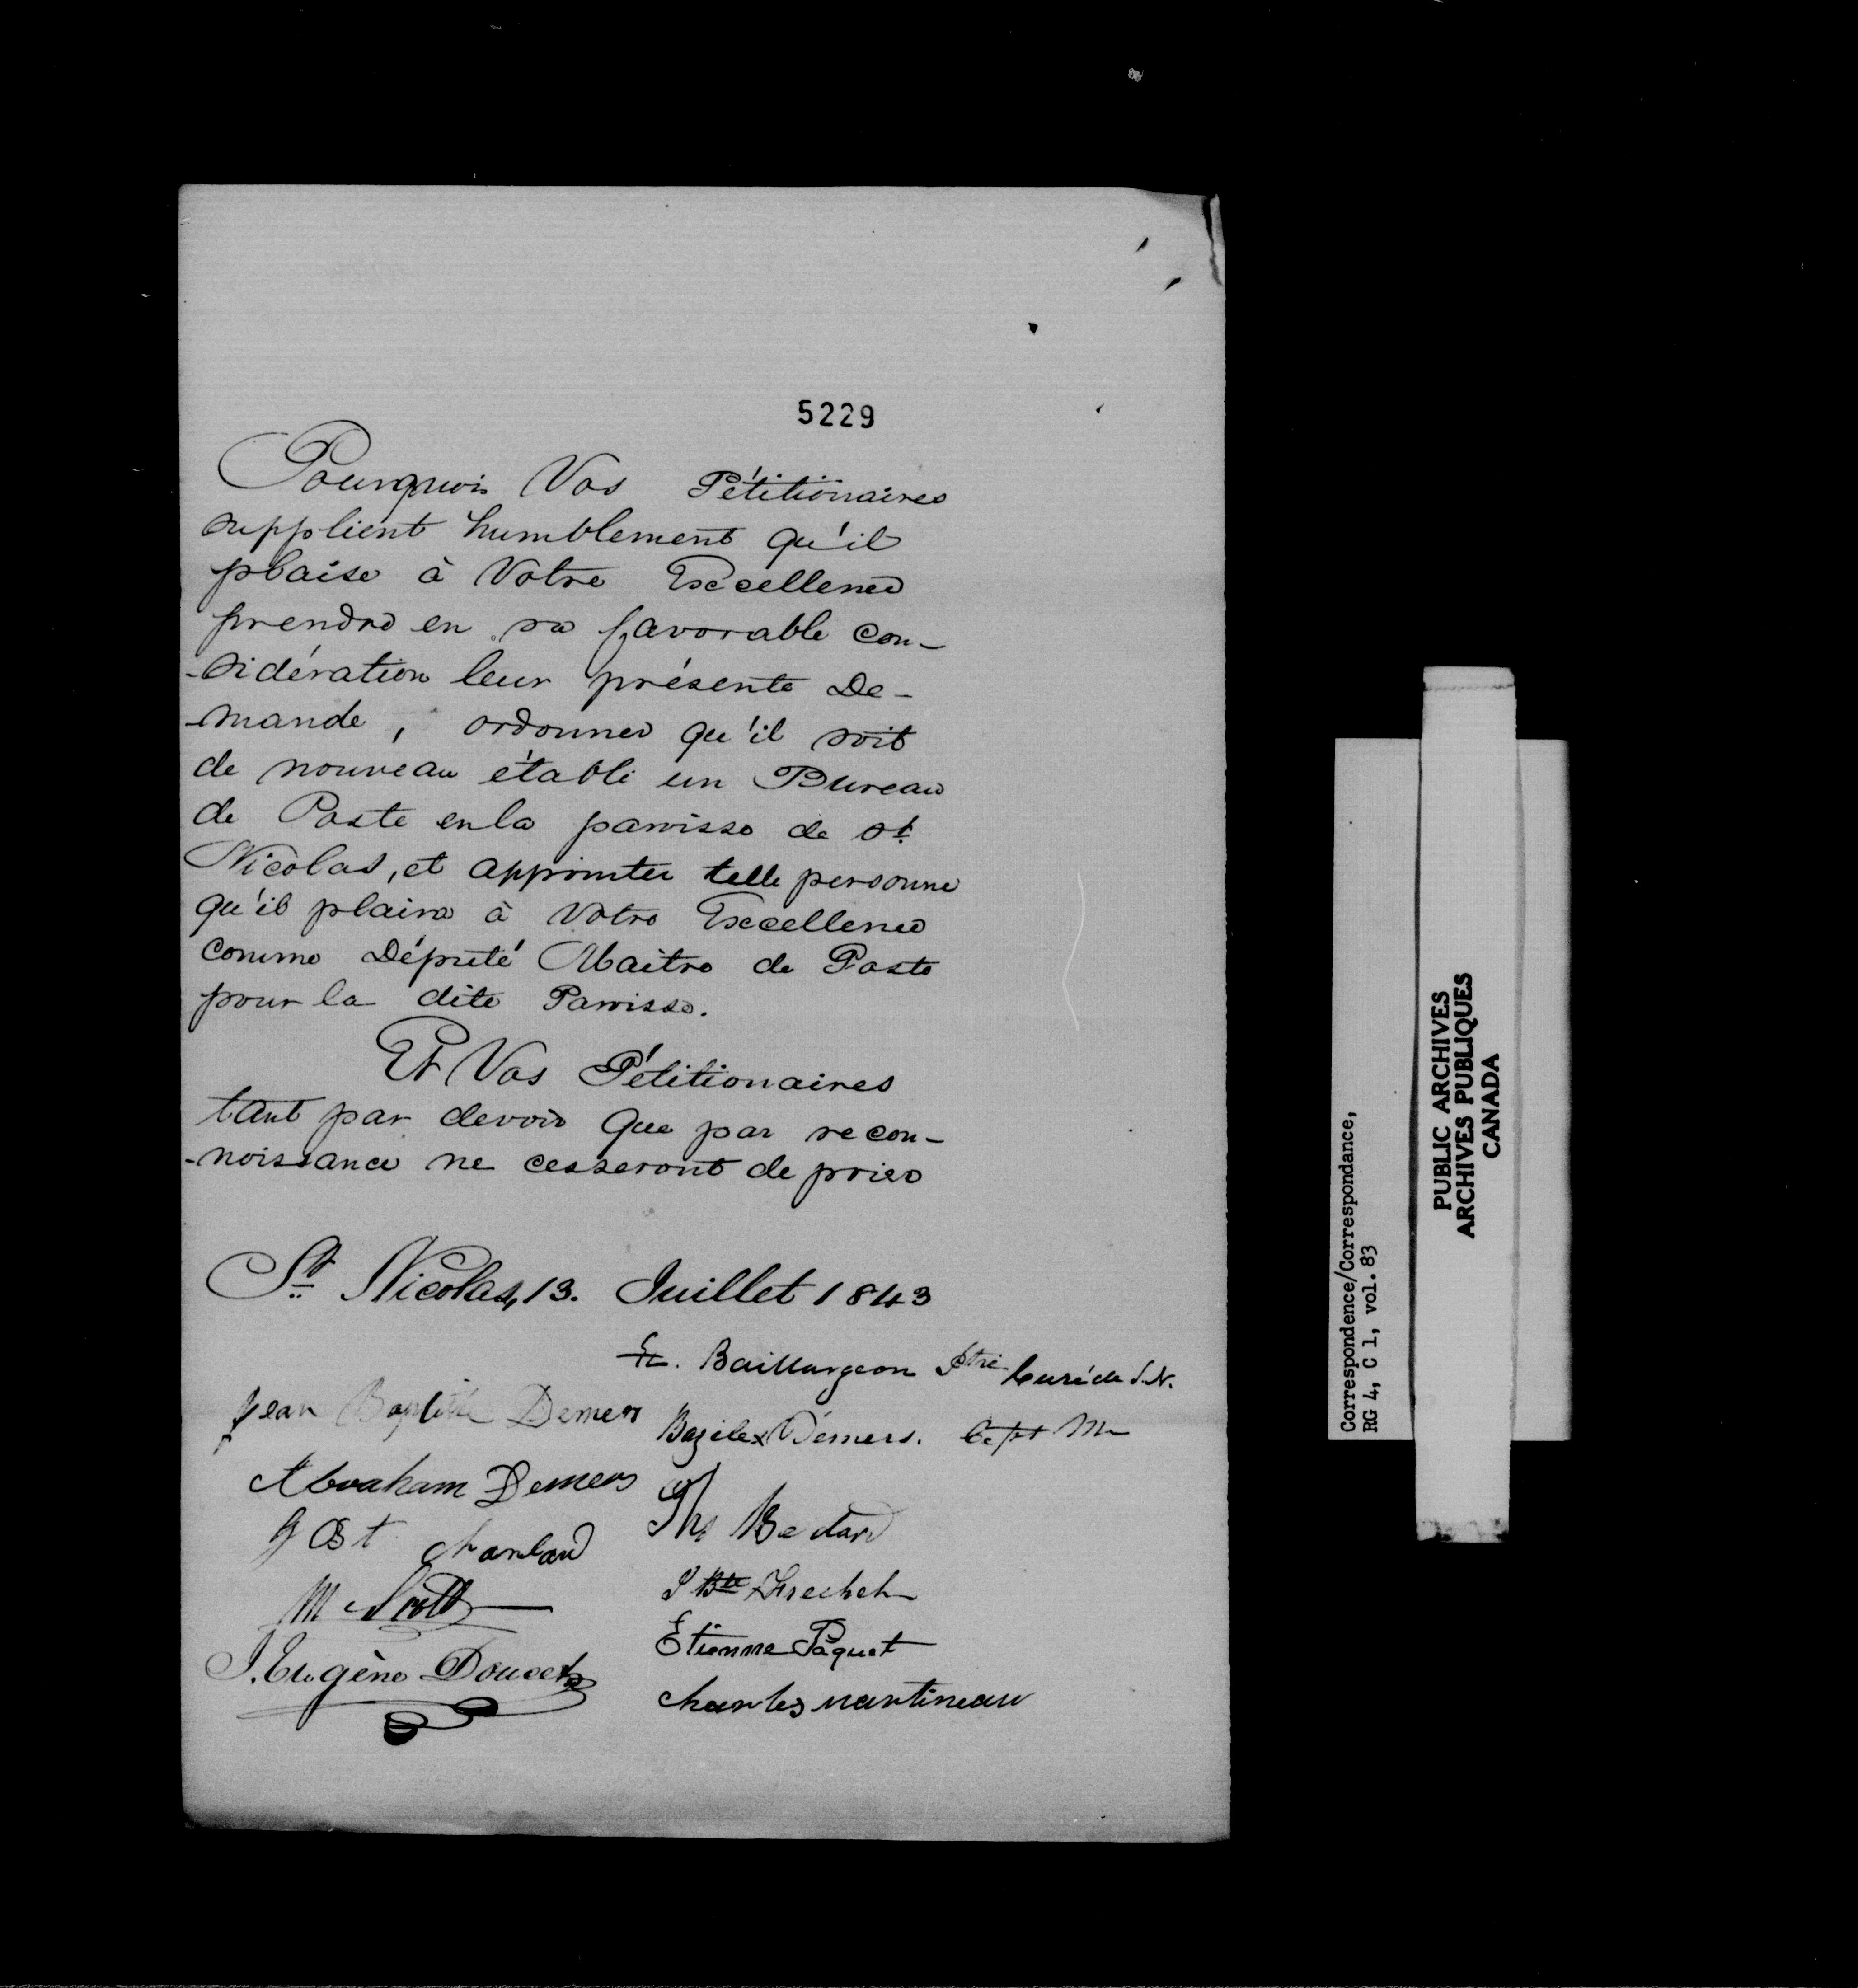 5229
Pourquoi Vos Pétitionaires
supplient humblement qu'il
plaise à Votre Excellence
prendre en sa favorable con-
-sidération leur présente De-
-mande, ordonner qu'il soit
de nouveau établi un Bureau
de Poste en la paroisse de St.
Nicolas, et appointer telle personne
qu'il plaira à Votre Excellence
comme Député Maître de Poste
pour la dite Paroisse.
Et Vos Pétitionaires
tant par devoir que par recon-
-noissance ne cesseront de prier
St. Nicolas, 13. Juillet 1843
E. Baillargeon Ptre Curé de S.N.
Jean Baptiste Demers
Bazile x Démers. Capt M
Abraham Demers
Ths Bedard
J Bt charland
J Bte Frechet
M Scott
Etienne Pâquet
J. Eugène Doucet
charles martineau
Correspondence/Correspondance,
RG 4, C 1, vol. 83
PUBLIC ARCHIVES
ARCHIVES PUBLIQUES
CANADA